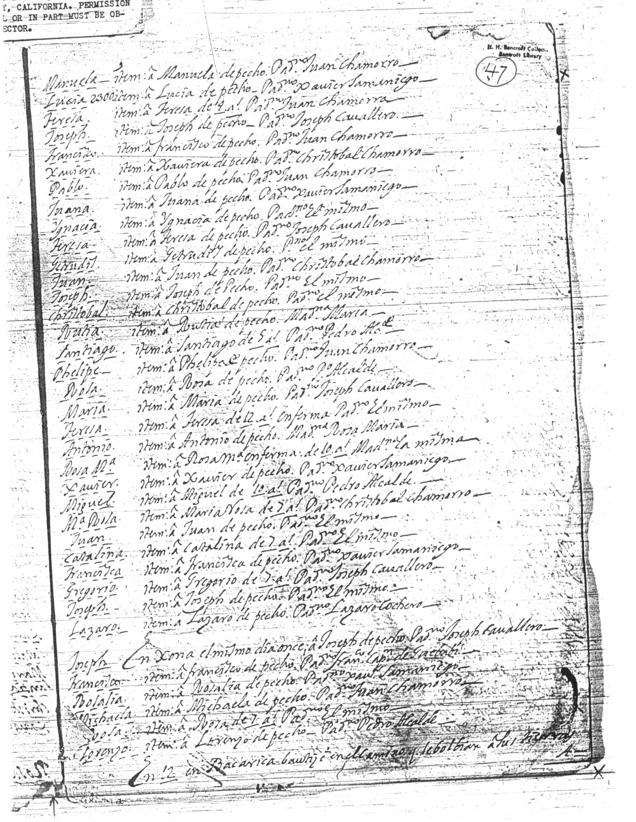 Y, CALIFORNIA. PERMISSION
L OR IN PART MUST BE OB-
ECTOR.
H. H. Bancroft Collec.
Bancroft Library
47
Manuela item: â Manuela de pecho. Padno Juan Chamorro
Lucia 2300 item: â Lucia de pecho. Padno Xavier Samaniego
Teresa item: â Teresa de al Padno Juan Chamorro
Joseph. item: â Joseph de pecho. Padno Joseph Cavallero.
Francisco. item: â francisco de pecho. Padno Juan Chamorro
Xaviera. item: â Xaviera de pecho. Padno Christobal Chamorro
Pablo. item: â Pablo de pecho. Padno Juan Chamorro
Juana. item: â Juana de pecho. Padno Xavier Samaniego
Ignacia. item: â Ignacia de pecho. Padno el mismo
Teresa. item: â Teresa de pecho. Padno Joseph Cavallero
Getrudis. item: â Getrudis de pecho. Pno el mismo
Juan. item: â Juan de pecho. Padno Christobal Chamorro
Joseph. item: â Joseph de Pecho. Padno El mismo
Christobal. item: â Christobal de pecho. Padno el mismo
Rustia. item: â Rustia de pecho. Madna Maria
Santiago. item: â Santiago de 5 al Padno Pedro Alce
Phelipe. item: â Phelipe de pecho. Padno Juan Chamorro
Rosa. item: â Rosa de pecho. Padno Po Alcalde
Maria. item: â Maria de pecho. Padno Joseph Cavallero
Teresa. item: â Teresa de 12 al enferma Padno El mismo
Antonio. item: â Antonio de pecho. Madna Rosa Maria
Rosa Ma item: â Rosa Ma enferma de 60 al Madna la misma
Xavier. item: â Xavier de pecho. Padno Xavier Samaniego
Miguel item: â Miguel de 10 al Padno Pedro Alcalde
Ma Rosa. item: â Maria Rosa de 7 al Padno Christobal Chamorro
Juan item: â Juan de pecho. Padno El mismo
Catalina item: â Catalina de 7 al Padno El mismo
Francisca item: â Francisca de pecho. Padno Xavier Samaniego
Gregorio. item: â Gregorio de al Padno Joseph Cavallero.
Joseph. item: â Joseph de pecho. Padno El mismo
Lazaro. item: â Lazaro de pecho. Padno Lazaro Cochero
Joseph En Xona el mismo dia once, â Joseph de pecho. Padno Joseph Cavallero
Francisco. item: â francisco de pecho. Padno Franco Capn de
Rosalia item: â Rosalia de pecho. Padno Xavr Samaniego
Michaela item: â Michaela de pecho. Padno Juan Chamorro
Rosa item: â Rosa de 7 al Padno El mismo
Lorenzo. item: â Lorenzo de pecho. Padno Pedro Alcalde
En 12 en Bacarica bautisè